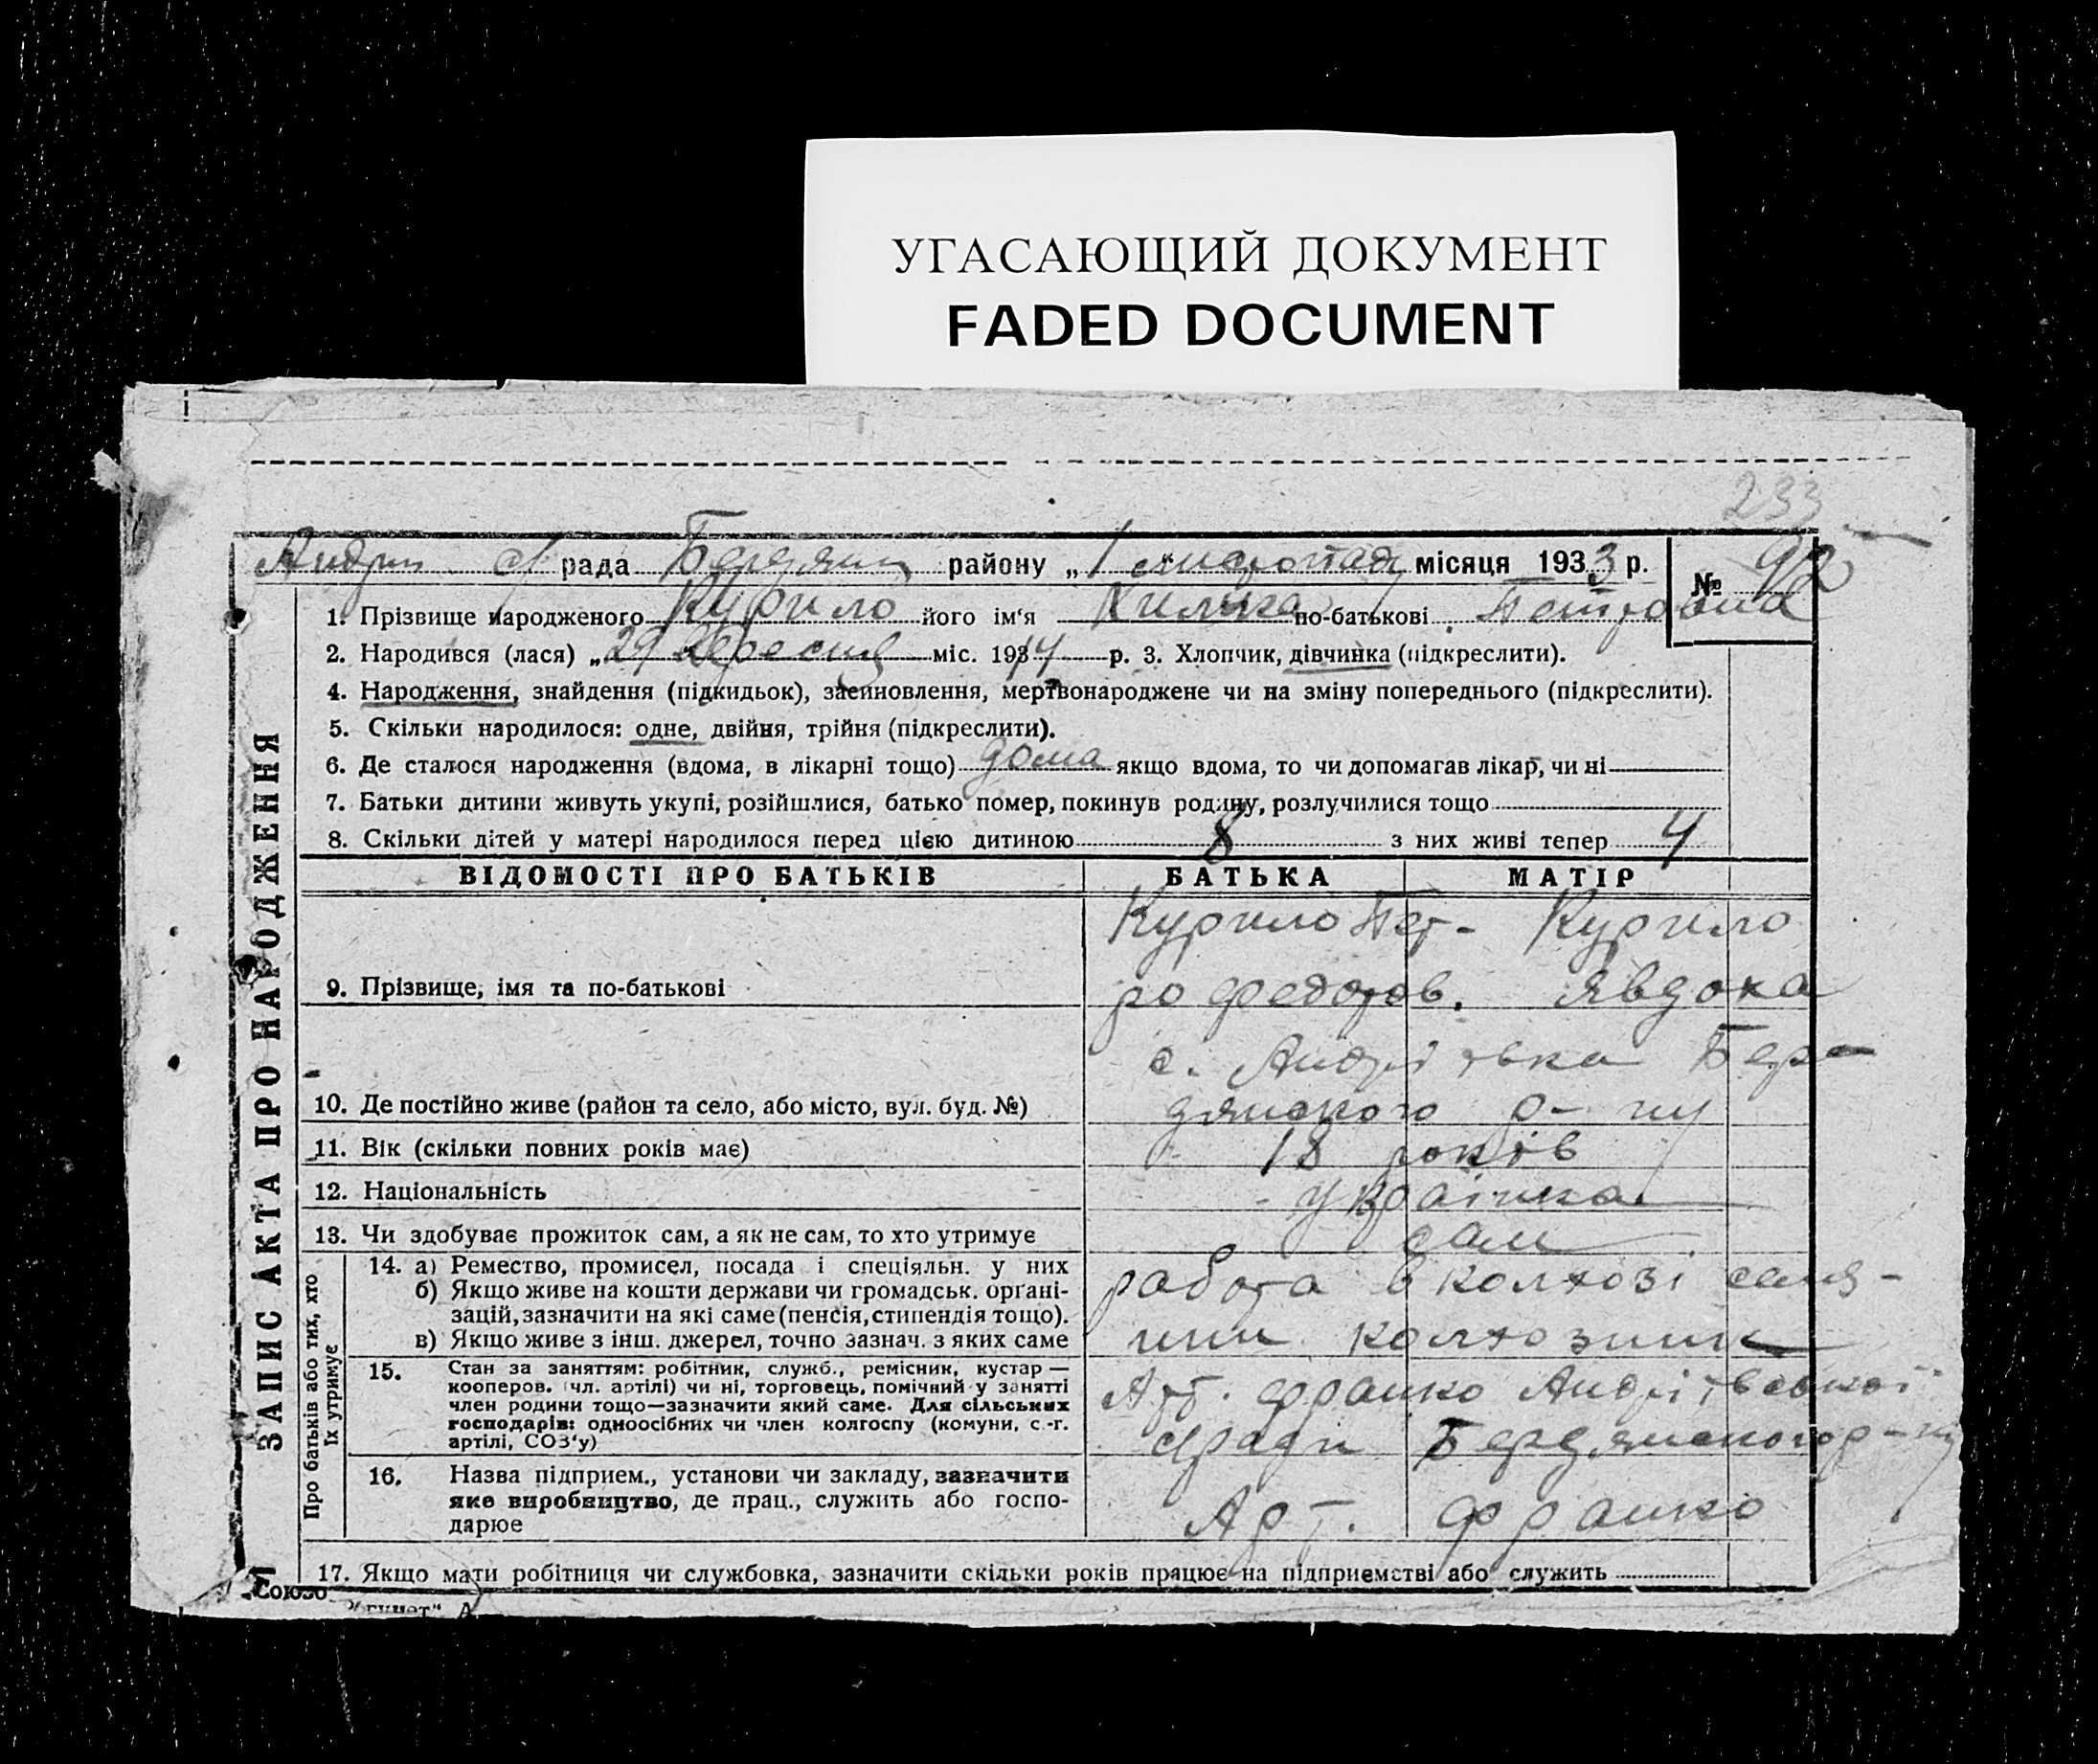 УГАСАЮЩИЙ ДОКУМЕНТ
FADED DOCUMENT
233
Андри с/рада Бердянц району „1 листопаду місяця 1933 р. № 92
1. Прізвище народженого Курило його ім‘я по-батькові Петровна
2. Народився (лася) „29 Вересня міс. 1914 р. 3. Хлопчик, дівчинка (підкреслити).
4. Народження, знайдення (підкидьок), засиновлення, мертвонароджене чи на зміну попереднього (підкреслити).
5. Скільки народилося: одне, двійня, трійня (підкреслити).
6. Де сталося народження (вдома, в лікарні тощо) дома якщо вдома, то чи допомагав лікар, чи ні
7. Батьки дитини живуть укупі, розійшлися, батько помер, покинув родину, розлучилися тощо
8. Скільки дітей у матері народилося перед цією дитиною 8 з них живі тепер 4
ВІДОМОСТІ ПРО БАТЬКІВ БАТЬКА МАТІР
Курило Пет- Курило
9. Прізвище, імя та по-батькові ро Федотов. Явдоха
с. Андрі івка Бер-
10. Де постійно живе (район та село, або місто, вул. буд. №) дянського р-ну
11. Вік (скільки повних років має) 18 років
12. Національність - українка
13. Чи здобуває прожиток сам, а як не сам, то хто утримує сам
14. а) Ремество, промисел, посада і спеціяльн. у них
б) Якщо живе на кошти держави чи громадськ. органі-
зацій, зазначити на які саме (пенсія, стипендія тощо).
в) Якщо живе з інш. джерел, точно зазнач. з яких саме
робота в колхозі селя-
нин колхозник
15. Стан за заняттям: робітник, служб., ремісник, кустар —
кооперов. (чл. артілі) чи ні, торговець, помічний у занятті
член родини тощо—зазначити який саме. Для сільських
господарів: одноосібних чи член колгоспу (комуни, с.-г.
артілі, СОЗ‘у)
Арт. Франко Андріівської
с/ради Бердянського р-ну
16. Назва підприєм., установи чи закладу, зазначити
яке виробництво, де прац., служить або госпо-
дарює
Арт. Франко
17. Якщо мати робітниця чи службовка, зазначити скільки років працює на підприємстві або служить
ЗАПИС АКТА ПРО НАРОДЖЕННЯ
Про батьків або тих, хто
їх утримує